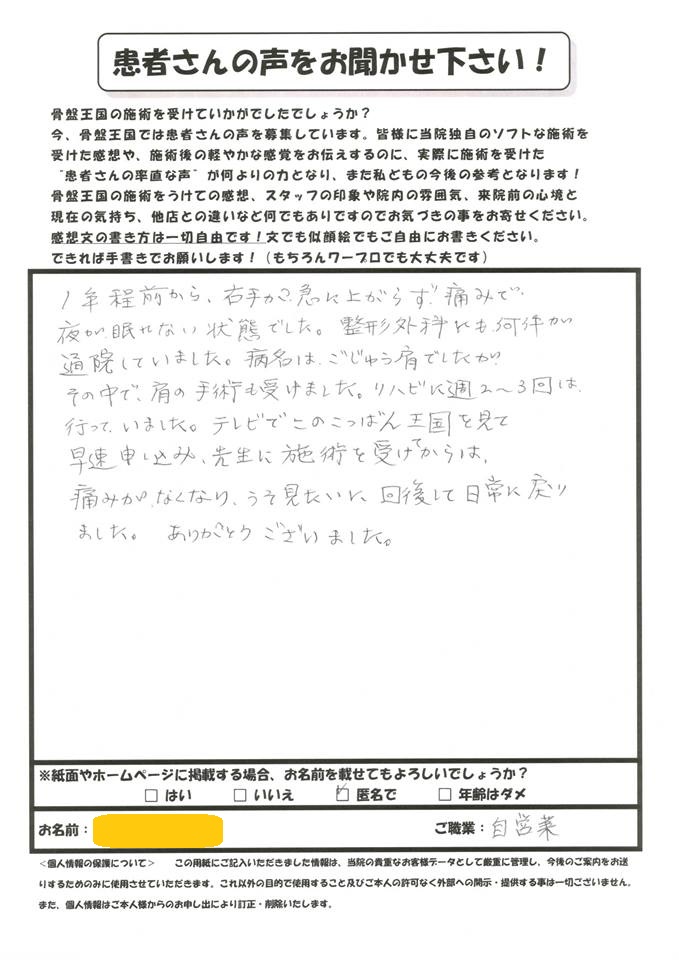 患者さんの声をお聞かせ下さい！
骨盤王国の施術を受けていかがでしたでしょうか？
今、骨盤王国では患者さんの声を募集しています。皆様に当院独自のソフトな施術を
受けた感想や、施術後の軽やかな感覚をお伝えするのに、実際に施術を受けた
"患者さんの率直な声"が何よりの力となり、また私どもの今後の参考となります！
骨盤王国の施術をうけての感想、スタッフの印象や院内の雰囲気、来院前の心境と
現在の気持ち、他店との違いなど何でもありですのでお気づきの事をお寄せください。
感想文の書き方は一切自由です！文でも似顔絵でもご自由にお書きください。
できれば手書きでお願いします！（もちろんワープロでも大丈夫です）
1年程前から、右手が急に上がらず痛みで、
夜が眠れない状態でした。整形外科にも何件か
通院していました。病名は、ごじゅう肩でしたが
その中で、肩の手術も受けました。リハビに週2～3回は、
行っていました。テレビでこのこつばん王国を見て
早速申し込み、先生に施術を受けてからは、
痛みが、なくなり、うそ見たいに回後して日常に戻り
ました。 ありがとうございました。
※紙面やホームページに掲載する場合、お名前を載せてもよろしいでしょうか？
□ はい □ いいえ ☑ 匿名で □ 年齢はダメ
お名前： ご職業：自営業
＜個人情報の保護について＞ この用紙にご記入いただきました情報は、当院の貴重なお客様データとして厳重に管理し、今後のご案内をお送
りするためのみに使用させていただきます。これ以外の目的で使用すること及びご本人の許可なく外部への開示・提供する事は一切ございません。
また、個人情報はご本人様からのお申し出により訂正・削除いたします。